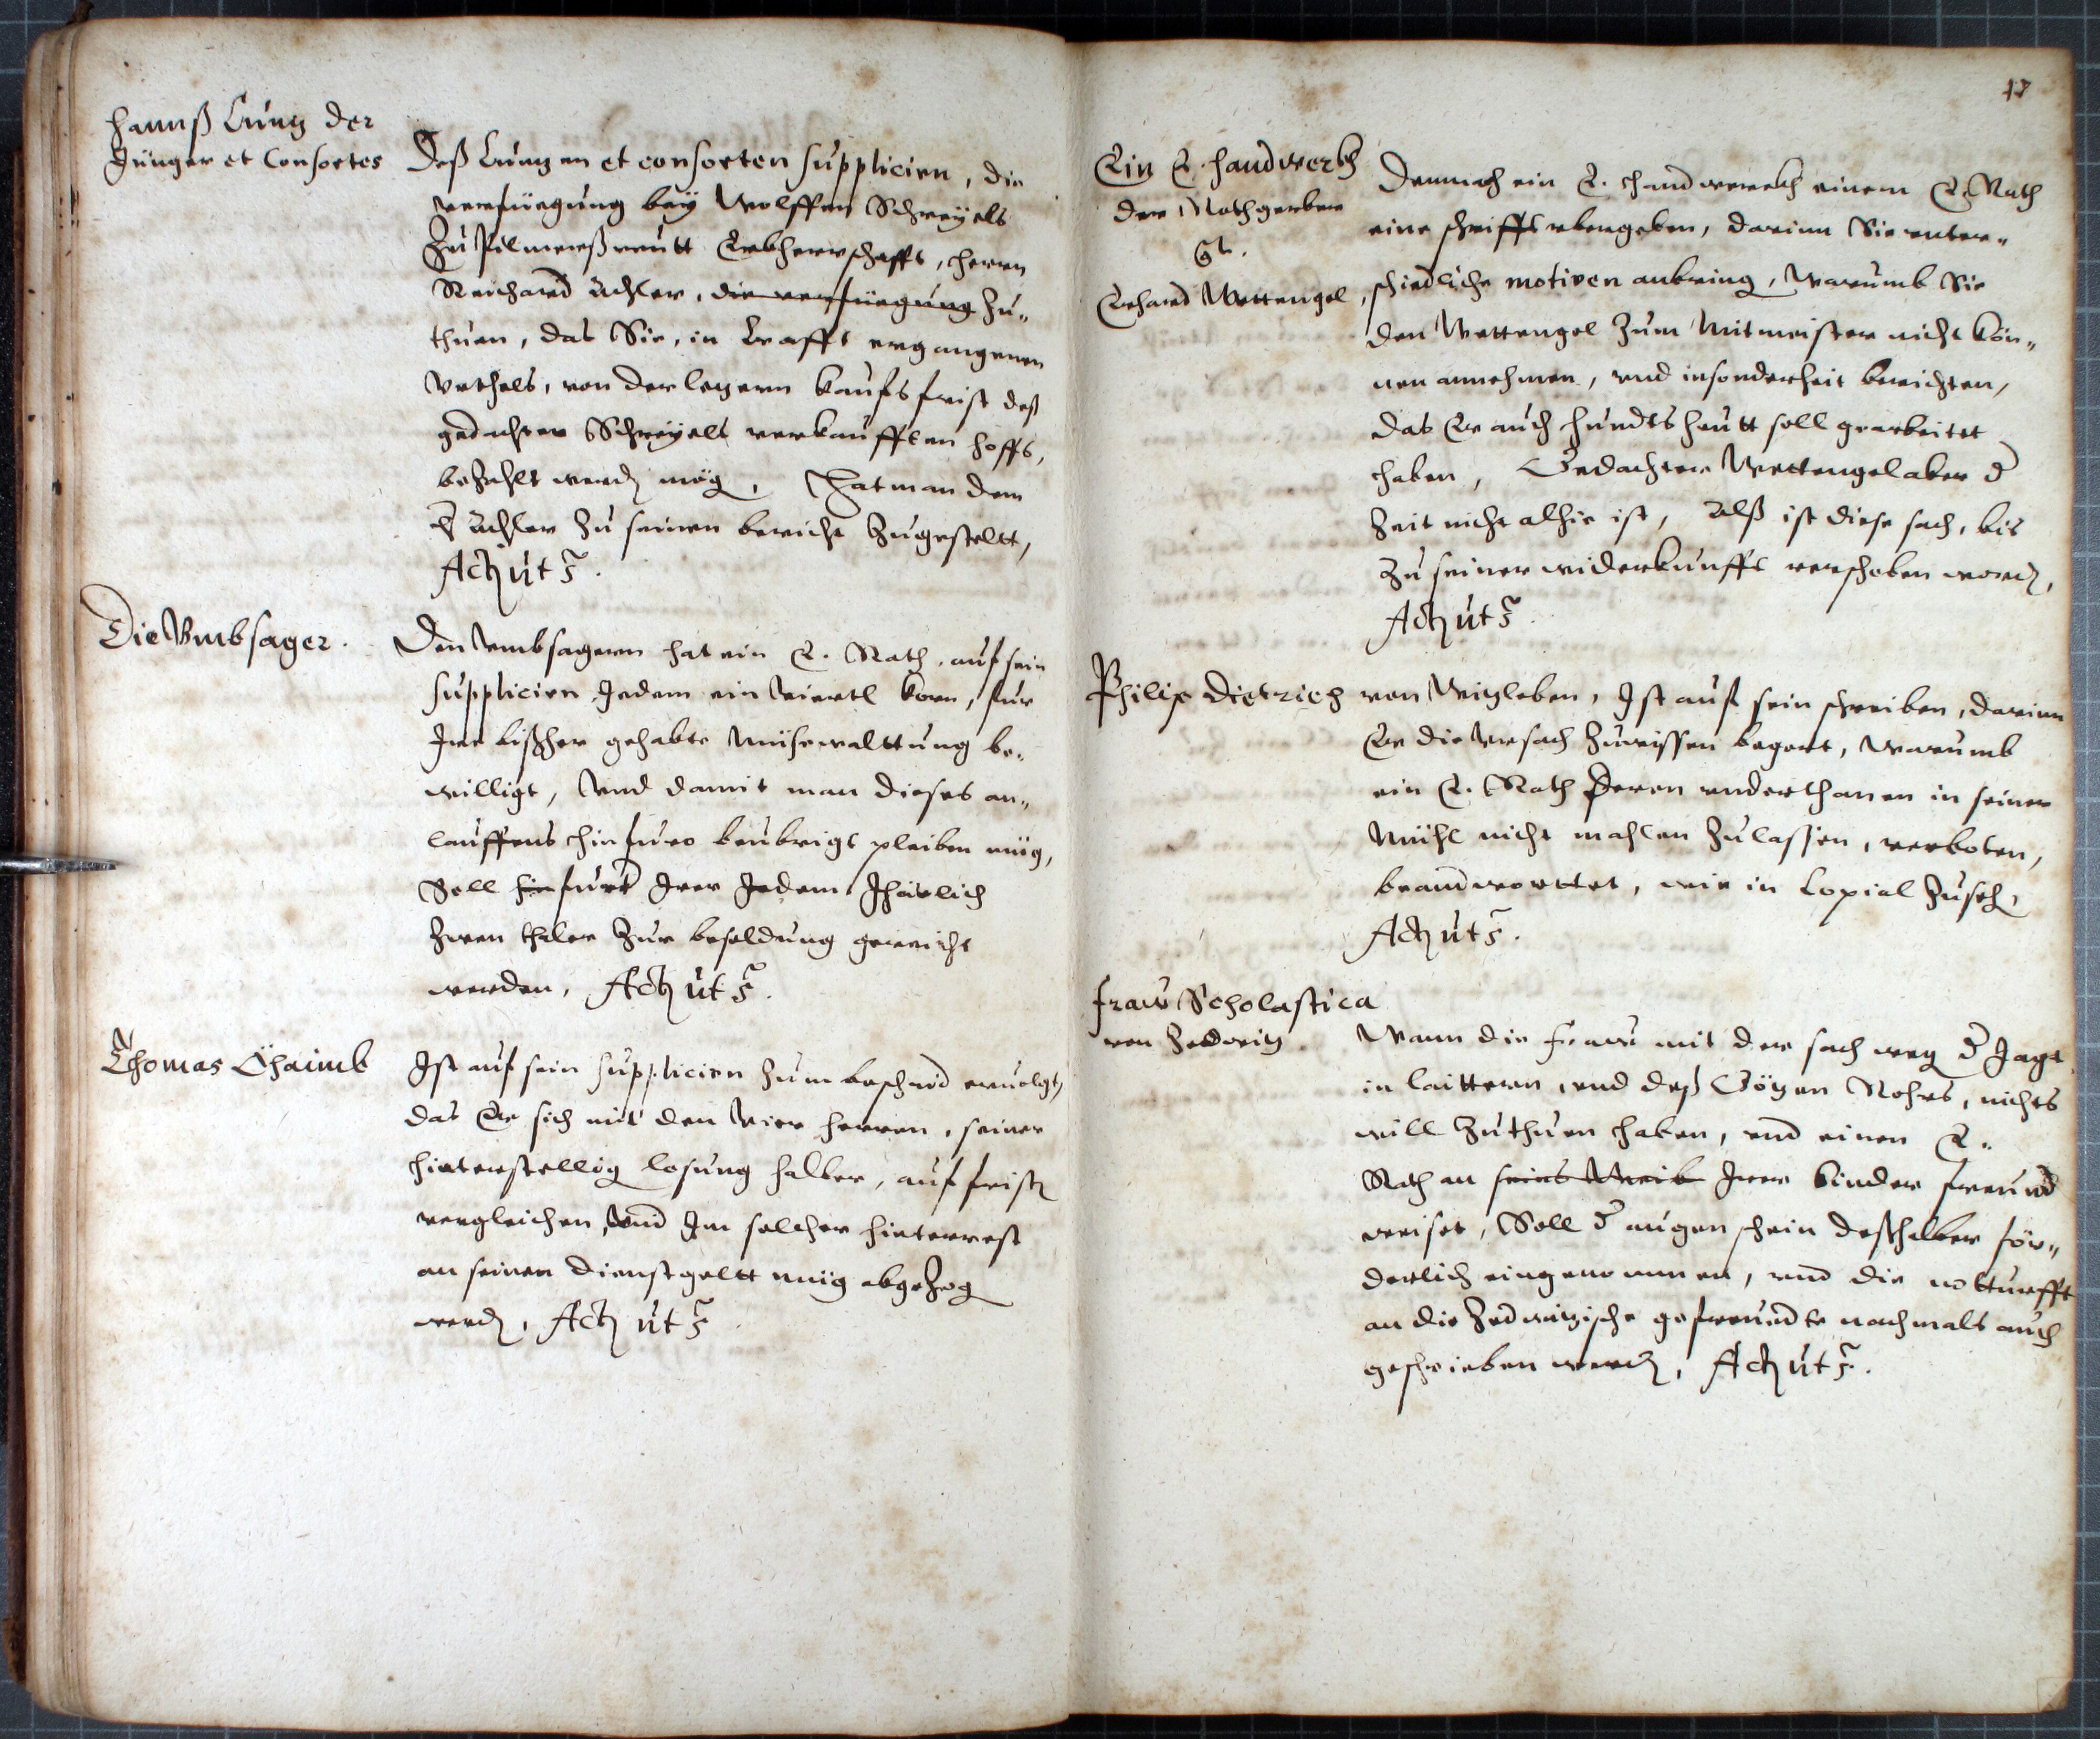 Hannß Lung der
Junger et Consortes
Deß Lungen et consorten supplicirn, die
verfüegung bey Wolffen Schreyels
zu Pilmerßreutt Erbherrschafft, herrn
Reichard Adler, die verfüegung zu„
thuen, das Sie, in krafft ergangenen
Vrthels, von der lezern kaufsfrist deß
gedachter Schreyels verkaufften hoffs,
bezahlt werdn mög, Hat man dem
H Adler zu seinen bericht zugestellt,
Actum ut s.
Die Vmbsager.
Den Vmbsagern hat ein E. Rath, auf sein
supplicirn Jedem ein Viertl korn, fur
Jre bißher gehabte Müihewalttung be„
willigt, Vnd damit man dieses an„
lauffens hinfuro beubrigt pleiben müg,
Soll hinfurt Jrer Jedem Jhärlich
zwen thaler zur besoldung gereicht
werden, Actum ut s.
Thomas Chaimb
Ist auf sein supplicirn zum beschaid ervolgt,
das Er sich mit den Vier herren, seiner
hinterstellig losung halber, auf fristn
vergleichen, Vnd Jm solcher hinterrest
an seinen dienstgeltt müg abgezog
werdn, Actum ut s.
17
Ein E. Handwerkh
der Rothgerber
Ct.
Erhard Wettengel,
Demnach ein E. handwerckh einem E. Rath
eine schrifft vbergeben, darinn Sie vnter„
schiedliche motiven anbring, Warumb Sie
den Wettengel zum Mitmeister nicht kön„
nen annehmen, vnd insonderheit berichten,
das Er auch hundtsheutt soll gearbeitet
haben, Gedachter Wettengel aber d
Zeit nicht alhie ist, Alß ist diese sach, bis
zu seiner widerkunfft verschoben wordn,
Actum ut s.
Philip Dietrich von Vizleben, Ist auf sein schreiben, darinn
Er die Vrsach zuwissen begert, Warumb
ein E. Rath Deren vnderthanen in seiner
Mühl nicht mahlen zulassen, verboten,
beandtworttet, wie in Copial zusehn,
Actum ut s.
Fraw Scholastica
von Zedwitz.
Wann die Fraw mit der sach weg d Jagt
in laittern, vnd deß Gözen Rohrs, nichts
will zuthuen haben, vnd einen E.
Rath an seins Weib Jrer kinder freund
weiset, Soll d augenschein deßhalber för„
derlich eingenommen, vnd die notturfft
an die Zedwizische gefreundte nachmals auch
geschrieben werdn, Actum ut s.